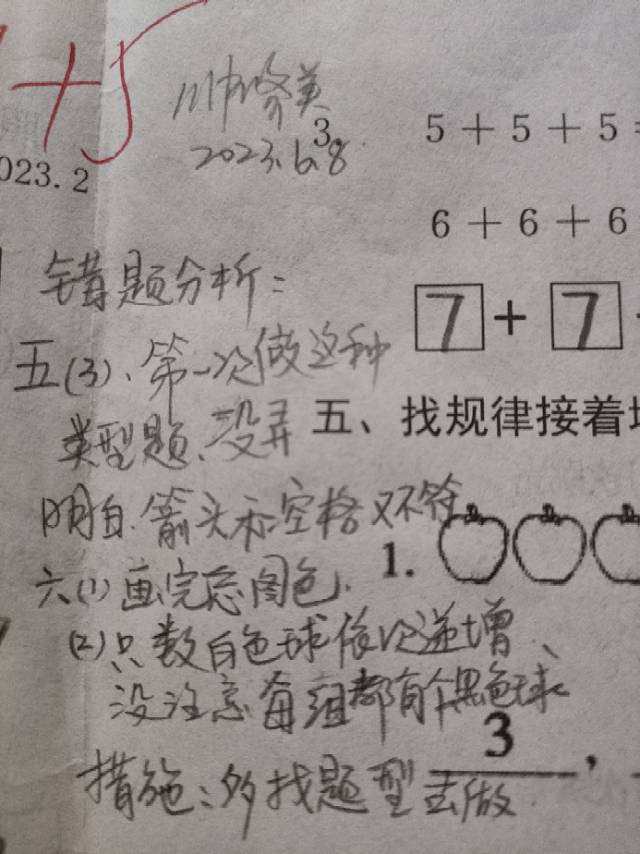 +5
2023.6.8
3.
5＋5＋5＝
023.2
6＋6＋6
错题分析：
7＋7
五(3)、第一次做这种
类型题、没弄
五、找规律接着
明白.箭头和空格又不符
1.
六(1)画完忘图色.
(2)只数白色球依次递增、
没注意每组都有个黑色球
3，
措施：多找题型去做